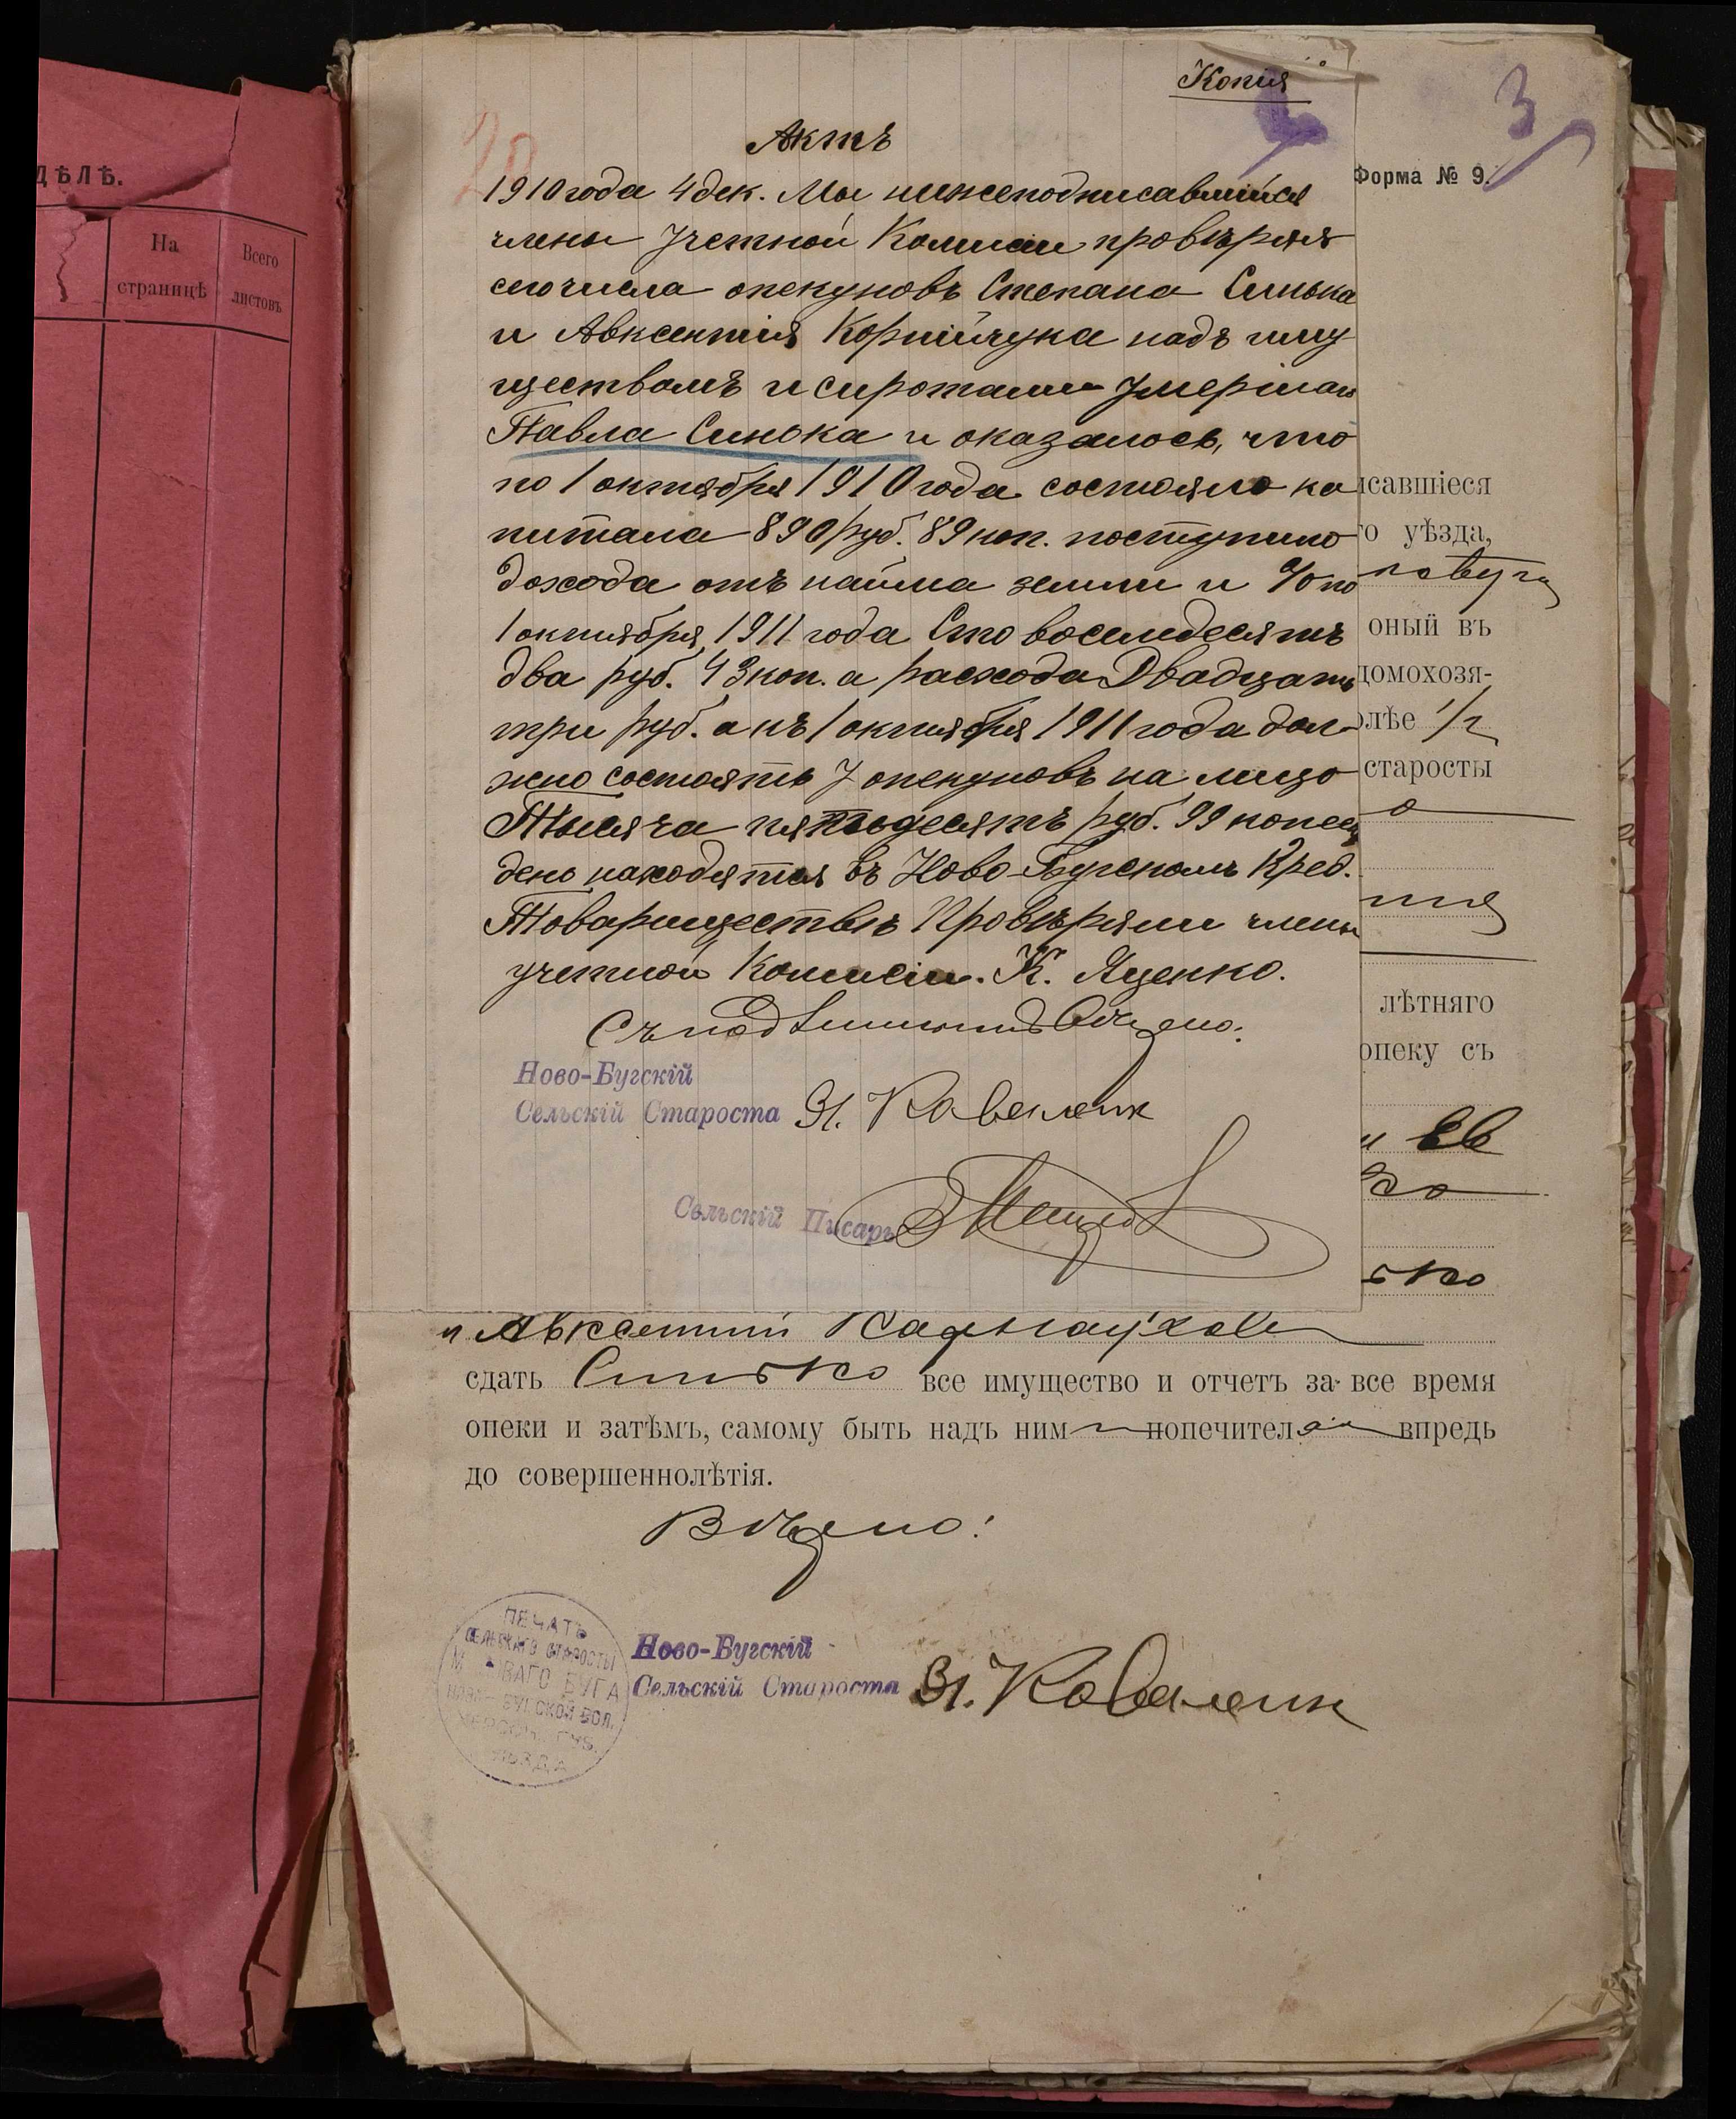 ДѢЛѢ.
На страницѣ
Всего листовъ
Копія
3
Форма № 9.
Актъ
1910 года 4 дек. Мы нижеподписавшійся
члены Учетной Комисіи провѣряя
сего числа опекуновъ Степана Синька
и Авксентія Корнійчука надъ иму
ществомъ и сиротами Умершаго
Павла Синька и оказалось, что
по 1 октября 1910 года состояло ка
питала 890 руб. 89 коп. поступило
дохода отъ найма земли и % по
1 октября 1911 года Сто восемдесятъ
два руб. 43 коп. а расхода Двадцать
три руб. а къ 1 октября 1911 года дол
жно состоять У опекуновъ на лицо
Тысяча пятьдесятъ руб. 99 копеец
денг находятся въ Ново-Бугскомъ Кред.
Товариществѣ Провѣряли члены
учетной Комисіи. К. Яценко.
Съ подлиннымъ Вѣрно:
Ново-Бугскій
Сельскій Староста
Сельскій Писарь
исавшіеся
го уѣзда,
оный въ
домохозя-
олѣе
старосты
лѣтняго
опеку съ
и Авксентий
сдать Синько все имущество и отчетъ за все время
опеки и затѣмъ, самому быть надъ ним попечител впредь
до совершеннолѣтія.
Вѣрно:
ПЕЧАТЬ
СЕЛЬСКАГО СТАРОСТЫ
БУГА
БУГСКОЙ ВОЛ.
УѢЗДА
Ново-Бугскій
Сельскій Староста